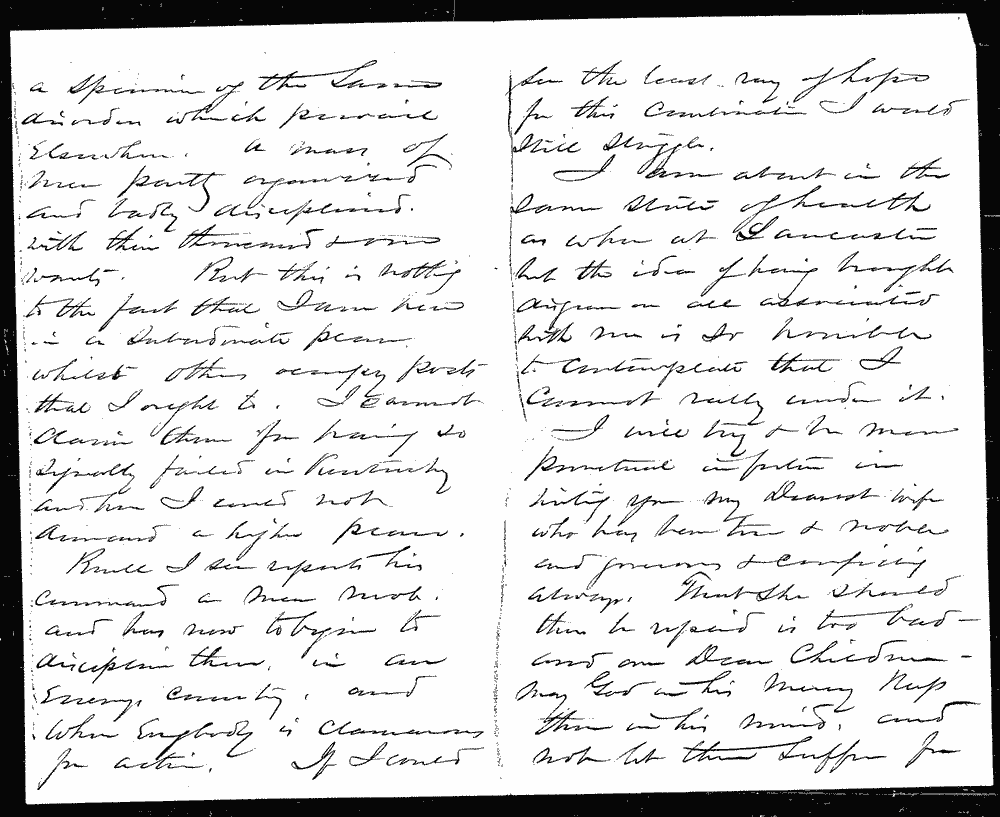 a specimen of the same
disorder which prevails
Elsewhere. A mass of
men partly organized
and badly disciplined.
with their thousand & one
wants. But this is nothing
to the fact that I am here
in a subordinate place,
whilst others occupy posts
that I ought to. I cannot
claim them for having so
signally failed in Kentucky
and here I could not
demand a higher place.
Buell I see reports his
command a mere mob.
and has now to begin to
discipline them, in an
Enemys country, and
when Everybody is clamorous
for action. If I could
see the least ray of hope
for this combination I would
still struggle.
I am about in the
same state of health
as when at Lancaster
but the idea of having brought
disgrace on all associated
with me is so horrible
to contemplate that I
cannot really under it.
I will try & be more
punctual in future in
writing you my Dearest wife
who has been true & noble
and generous & confiding
always. That she should
thus be repaid is too bad -
and our Dear Children -
may God in his Mercy keep
them in his mind, and
not let them suffer for